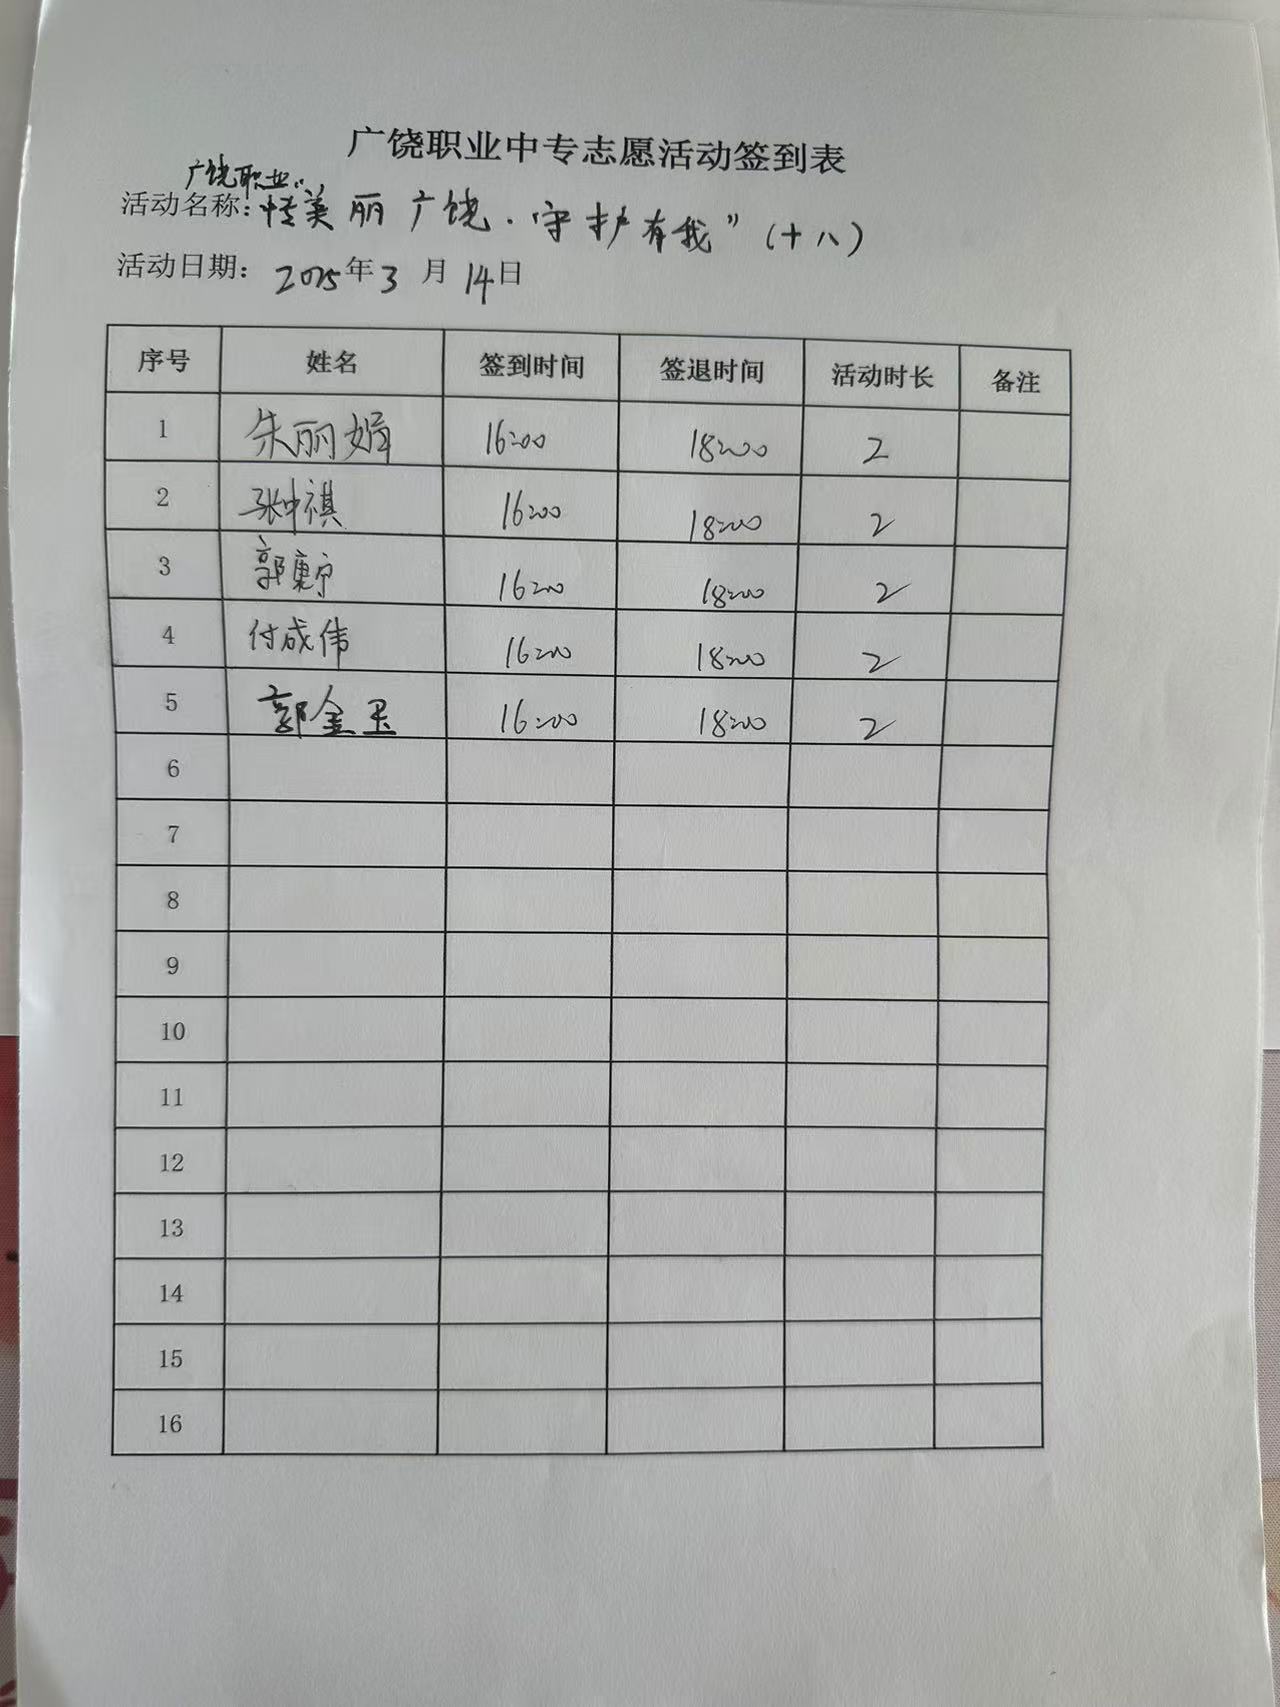 广饶职业中专志愿活动签到表
广饶职业
活动名称：中专“美丽广饶·守护有我”（十八）
活动日期：2025年3月14日
序号 姓名 签到时间 签退时间 活动时长 备注
1 朱丽娟 16:00 18:00 2
2 张中祺 16:00 18:00 2
3 郭康宁 16:00 18:00 2
4 付成伟 16:00 18:00 2
5 郭金玉 16:00 18:00 2
6
7
8
9
10
11
12
13
14
15
16